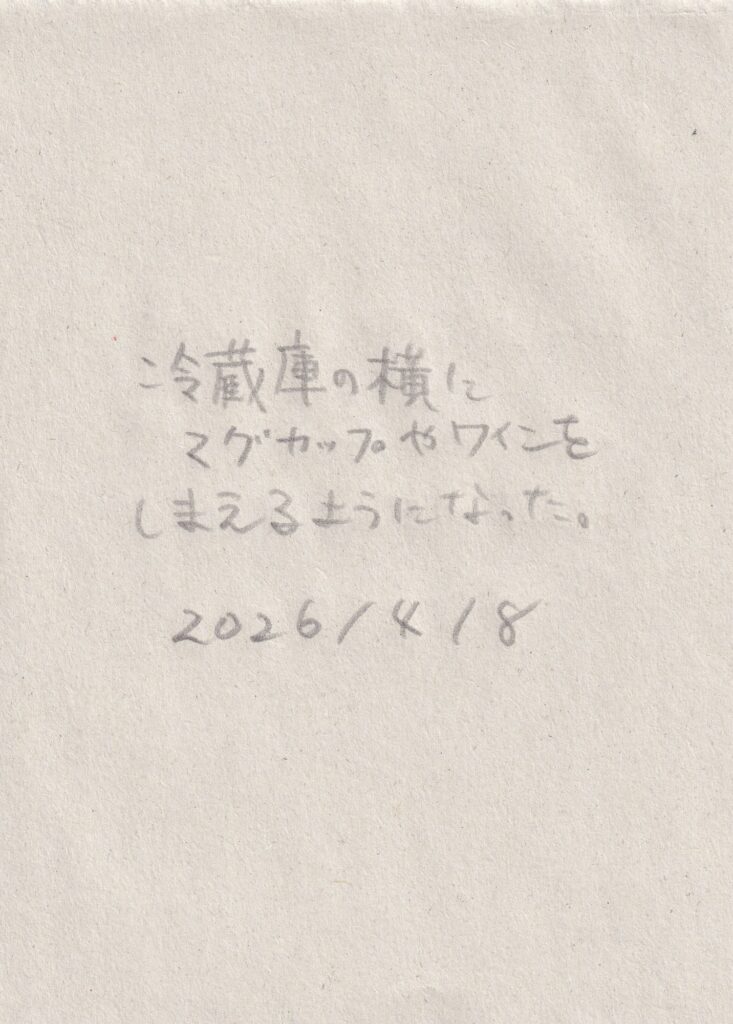 冷蔵庫の横に
マグカップやワインを
しまえるようになった。
2026/4/8